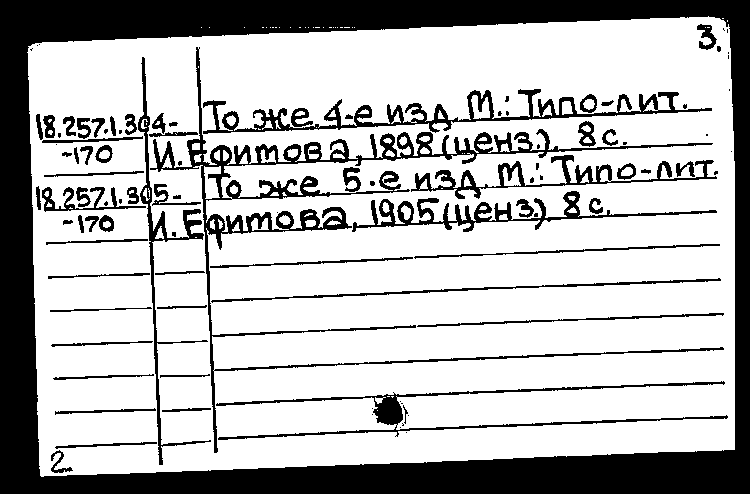 3.
18.257.1.304- То же. 4-е изд. М.: Типо-лит.
-170 И. Ефитова, 1898 (ценз.). 8 с.
18.257.1.305- То же. 5-е изд. М.: Типо-лит.
-170 И. Ефитова, 1905 (ценз.). 8 с.
2